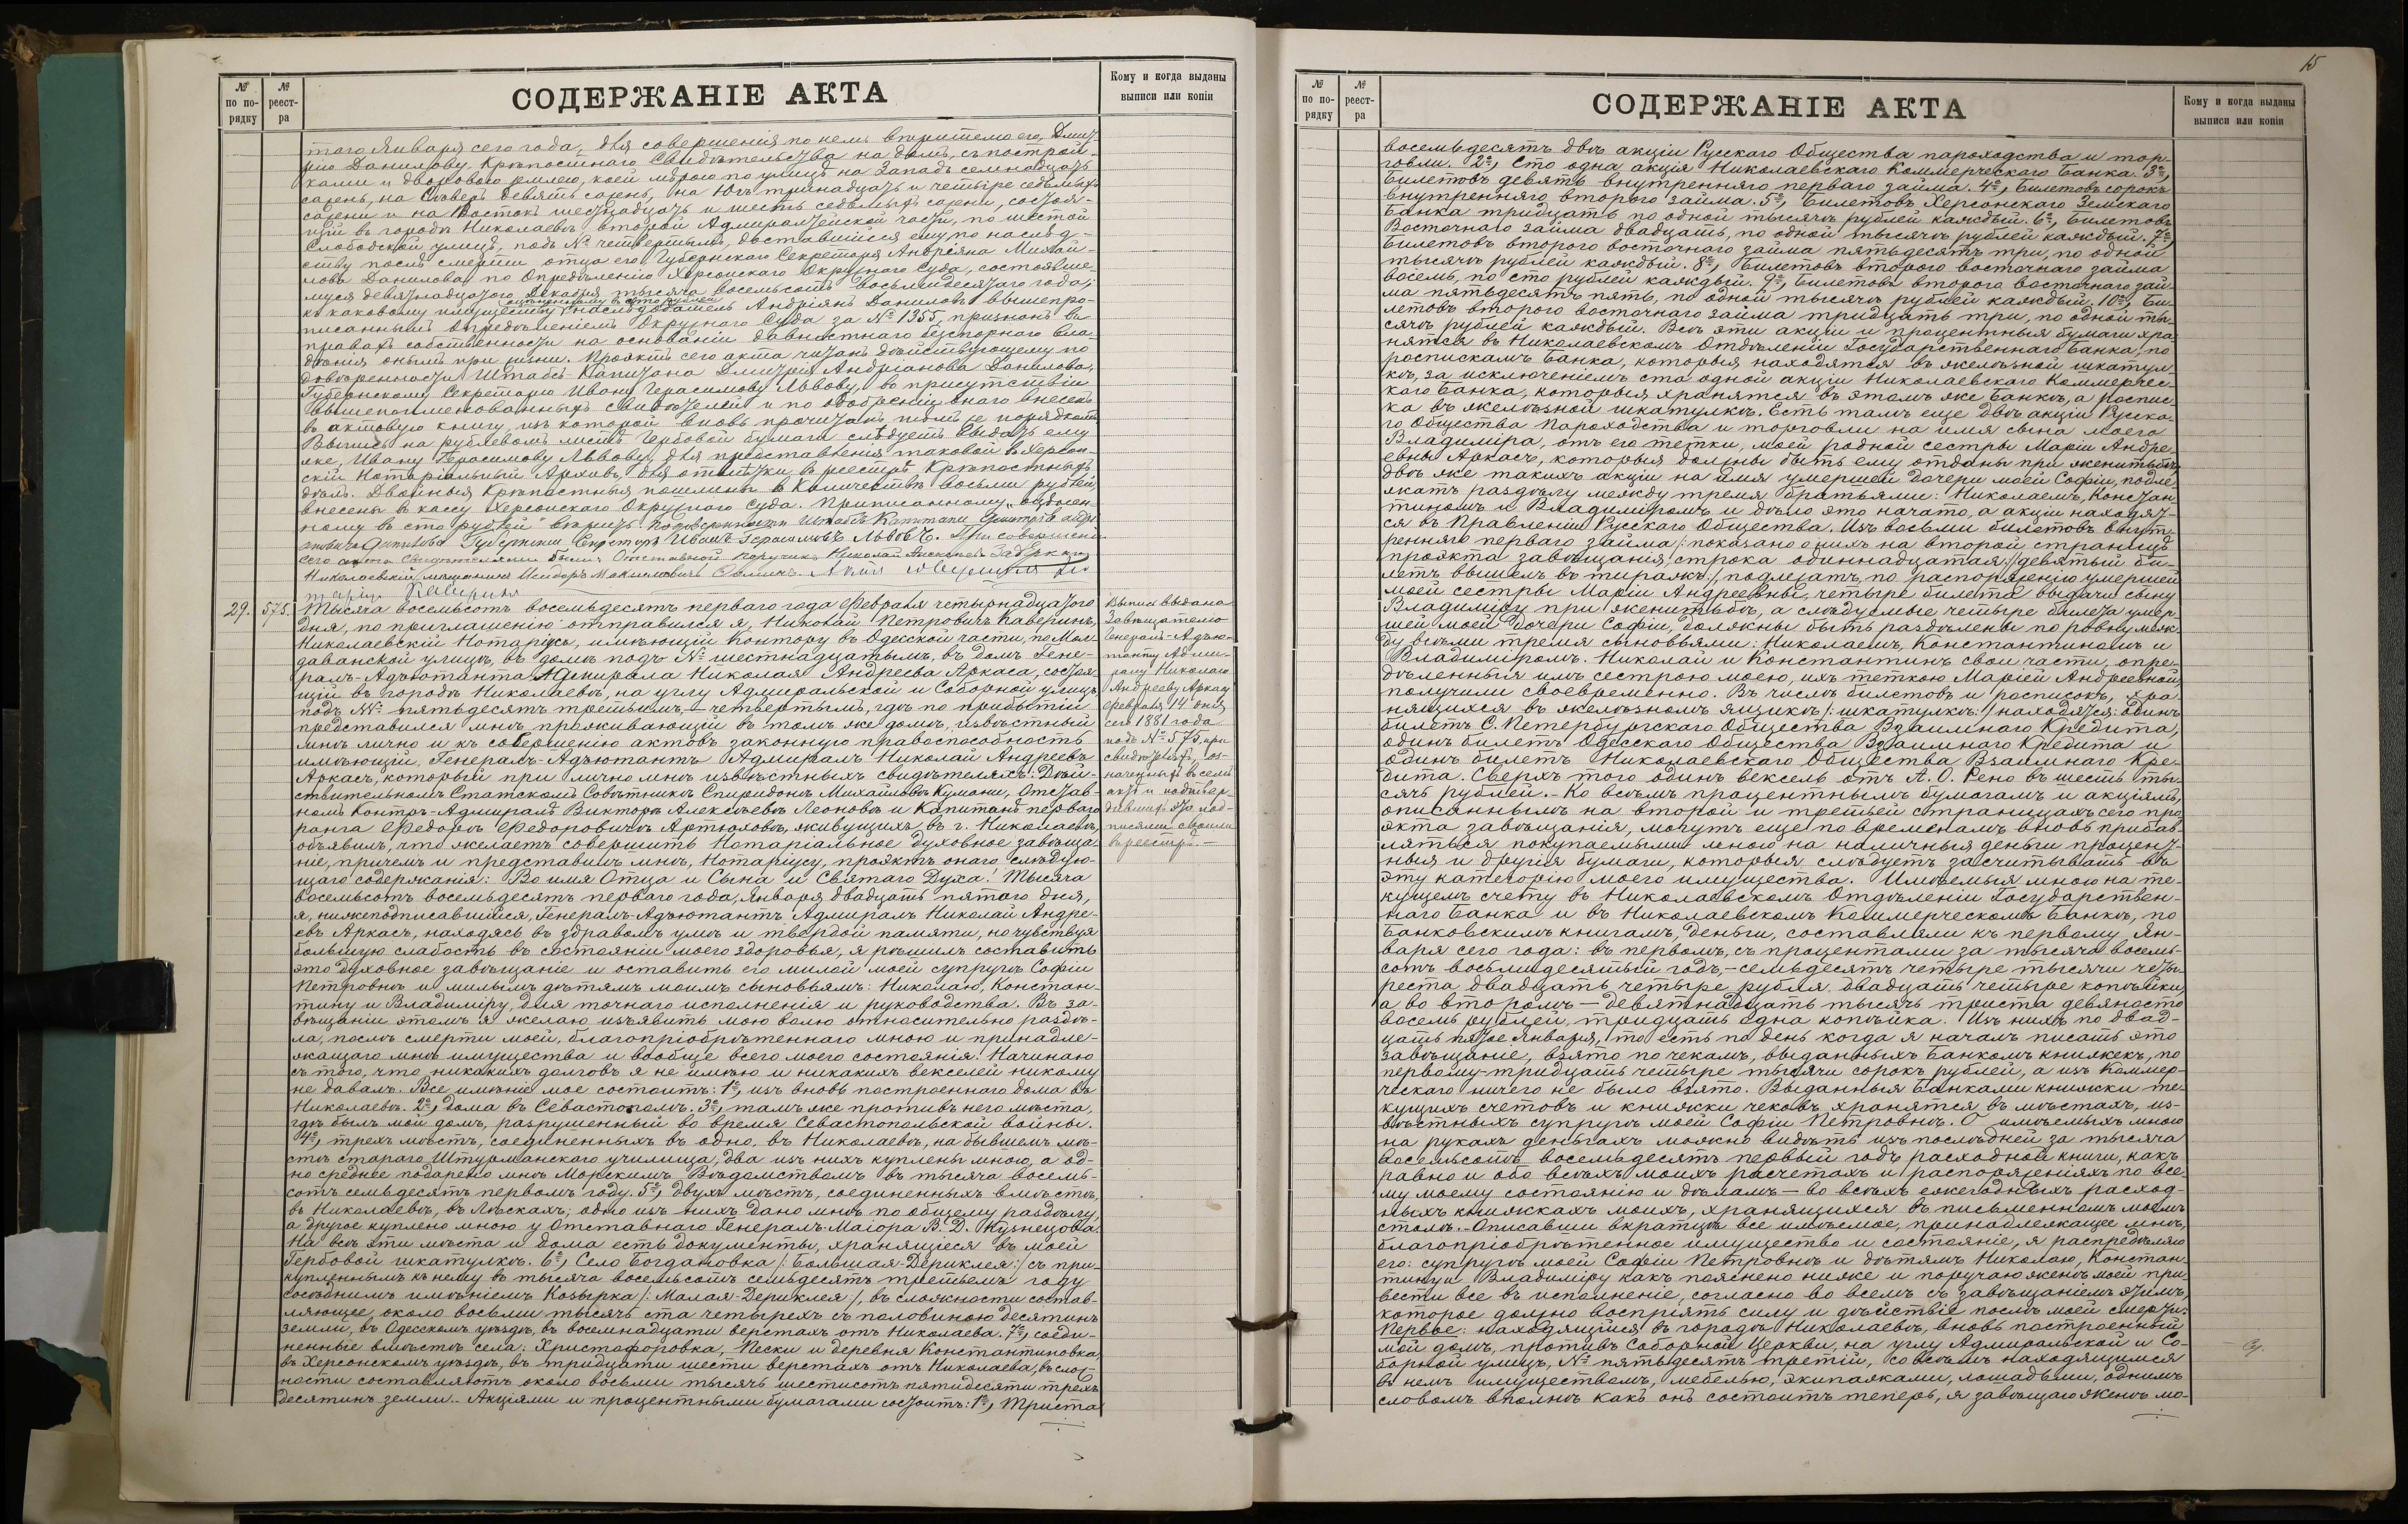 № по по-рядку
№ реест-ра
СОДЕРЖАНІЕ АКТА
Кому и когда выданы выписи или копіи
таго Января сего года, для совершенія по немъ вѣрителю его, Дмит-
рію Данилову, Крѣпостнаго Свидѣтельства на домъ, съ построй-
ками и дворовою землею, коей мѣрою по улицѣ на Западъ семнадцать
сажень, на Сѣверъ девять сажень, на Югъ тринадцать и четыре седьмыхъ
сажени и на Востокъ шестнадцать и шесть седьмыхъ сажени, состоя-
щій въ городѣ Николаевѣ второй Адмиралтейской части, по шестой
Слободской улицѣ, подъ № четвертымъ, доставшійся ему по наслѣд-
ству послѣ смерти отца его Губернскаго Секретаря Андреяна Михай-
лова Данилова, по Опредѣленію Херсонскаго Окружнаго Суда, состоявше-
муся девятнадцатого Декабря тысяча восемьсотъ восьмидесятаго года;
оцѣненному въ сто рублей
къ каковому имуществу наслѣдодатель Андріянъ Даниловъ вышепро-
писаннымъ опредѣленіемъ Окружнаго Суда за № 1355, признанъ въ
правахъ собственности на основаніи давностнаго безспорнаго вла-
дѣнія онымъ при жизни. Проэктъ сего акта читанъ дѣйствующему по
довѣренности Штабсъ-Капитана Дмитрія Андріанова Данилова,
Губернскому Секретарю Ивану Герасимову Львову, въ присутствіи
вышепоименованныхъ свидѣтелей и по одобреніи онаго внесенъ
въ актовую книгу, изъ которой вновь прочитанъ тѣмъ же порядкомъ
Выпись на рублевомъ листѣ Гербовой бумаги слѣдуетъ выдать ему
же, Ивану Герасимову Львову, для представленія таковой въ Херсон-
скій Нотаріальный Архивъ, для отмѣтки въ реестрѣ Крѣпостныхъ
дѣлъ. Двойныя Крѣпостныя пошлины въ количествѣ восьми рублей,
внесены въ кассу Херсонскаго Окружнаго Суда. Приписанному „оцѣнен-
ному въ сто рублей" вѣрить. По довѣренности Штабсъ Капитана Дмитрія Андрі-
ановича Данилова Губернскій Секретарь Иванъ Герасимовъ Львовъ. При совершеніи
сего акта свидѣтелями были: Отставной поручикъ Николай
Николаевскій мѣщанинъ Исидоръ Максимовичъ
29.
575.
Тысяча восемьсотъ восемьдесятъ перваго года Февраля четырнадцатого
дня, по приглашенію отправился я, Николай Петровичъ Каверинъ,
Николаевскій Нотаріусъ, имѣющій контору въ Одесской части, по Мол-
даванской улицѣ, въ домѣ подъ № шестнадцатымъ, въ домъ Гене-
ралъ-Адъютанта Адмирала Николая Андреева Аркаса, состоя-
щій въ городѣ Николаевѣ, на углу Адмиральской и Соборной улицъ
подъ №№ пятьдесятъ третьимъ, – четвертымъ, гдѣ по прибытіи
представился мнѣ, проживающій въ томъ же домѣ, извѣстный
мнѣ лично и къ совершенію актовъ законную правоспособность
имѣющій, Генералъ-Адъютантъ Адмиралъ Николай Андреевъ
Аркасъ, который при лично мнѣ извѣстныхъ свидѣтеляхъ: Дѣй-
ствительномъ Статскомъ Совѣтникѣ Спиридонѣ Михайловѣ Кумани, Отстав-
номъ Контръ-Адмиралѣ Викторѣ Алексѣевѣ Леоновѣ и Капитанѣ перваго
ранга Федорѣ Федоровичѣ Артюховѣ, живущихъ въ г. Николаевѣ,
объявилъ, что желаетъ совершить Нотаріальное духовное завѣща-
ніе, причемъ и представилъ мнѣ, Нотаріусу, проэктъ онаго слѣдую-
щаго содержанія: Во имя Отца и Сына и Святаго Духа! Тысяча
восемьсотъ восемьдесятъ перваго года, Января двадцать пятаго дня,
я, нижеподписавшійся, Генералъ-Адъютантъ Адмиралъ Николай Андре-
евъ Аркасъ, находясь въ здравомъ умѣ и твердой памяти, но чувствуя
большую слабость въ состояніи моего здоровья, я рѣшилъ составить
это духовное завѣщаніе и оставить его милой моей супругѣ Софіи
Петровнѣ и милымъ дѣтямъ моимъ сыновьямъ: Николаю, Констан-
тину и Владиміру, для точнаго исполненія и руководства. Въ за-
вѣщаніи этомъ я желаю изъявить мою волю относительно раздѣ-
ла, послѣ смерти моей, благопріобрѣтеннаго мною и принадле-
жащаго мнѣ имущества и вообще всего моего состоянія. Начинаю
съ того, что никакихъ долговъ я не имѣю и никакихъ векселей никому
не давалъ. Все имѣніе мое состоитъ: 1е, изъ вновь построеннаго дома въ
Николаевѣ. 2е, дома въ Севастополѣ. 3е, тамъ же противъ него мѣста,
гдѣ былъ мой домъ, разрушенный во время Севастопольской войны.
4е, трехъ мѣстъ, соединенныхъ въ одно, въ Николаевѣ, на бывшемъ мѣ-
стѣ стараго Штурманскаго училища, два изъ нихъ куплены мною, а од-
но среднее подарено мнѣ Морскимъ Вѣдомствомъ въ тысяча восемь-
сотъ семьдесятъ первомъ году. 5е, двухъ мѣстъ, соединенныхъ вмѣстѣ,
въ Николаевѣ, въ Лѣскахъ; одно изъ нихъ дано мнѣ по общему раздѣлу,
а другое куплено мною у Отставнаго Генералъ-Маіора В. Д. Кузнецова.
На всѣ эти мѣста и дома есть документы, хранящіеся въ моей
Гербовой шкатулкѣ. 6е, Село Богдановка /: Большая-Дериклея :/ съ при-
купленнымъ къ нему въ тысяча восемьсотъ семьдесятъ третьемъ году
сосѣднимъ имѣніемъ Козырка /: Малая-Дериклея :/, въ сложности состав-
ляющее, около восьми тысячъ ста четырехъ съ половиною десятинъ
земли, въ Одесскомъ уѣздѣ, въ восемнадцати верстахъ отъ Николаева. 7е, соеди-
ненные вмѣстѣ села: Христофоровка, Пески и деревня Константиновка,
въ Херсонскомъ уѣздѣ, въ тридцати шести верстахъ отъ Николаева, въ слож-
ности составляютъ около восьми тысячъ шестисотъ пятидесяти трехъ
десятинъ земли. Акціями и процентными бумагами состоитъ: 1е, Триста
Выпись выдана
Завѣщателю
Генералъ-Адъю-
танту Адми-
ралу Николаю
Андрееву Аркасу
Февраля 14 дня
сего 1881 года
подъ № 575, при
свидѣтеляхъ, оз-
наченныхъ въ семъ
актѣ и подтвер-
дившихъ это под-
писями своими
въ реестрѣ. —
15
№ по по-рядку
№ реест-ра
СОДЕРЖАНІЕ АКТА
Кому и когда выданы выписи или копіи
восемьдесятъ двѣ акціи Русскаго Общества пароходства и тор-
говли. 2е, Сто одна акція Николаевскаго Коммерческаго Банка. 3е,
Билетовъ девять внутренняго перваго займа. 4е, Билетовъ сорокъ
внутренняго втораго займа. 5е, Билетовъ Херсонскаго Земскаго
Банка тридцать по одной тысячѣ рублей каждый. 6е, Билетовъ
Восточнаго займа двадцать, по одной тысячѣ рублей каждый. 7е,
Билетовъ втораго восточнаго займа пятьдесятъ три, по одной
тысячѣ рублей каждый. 8е, Билетовъ втораго восточнаго займа
восемь, по сто рублей каждый. 9е, Билетовъ втораго восточнаго зай-
ма пятьдесятъ пять, по одной тысячѣ рублей каждый. 10е, Би-
летовъ втораго восточнаго займа тридцать три, по одной ты-
сячѣ рублей каждый. Всѣ эти акціи и процентныя бумаги хра-
нятся въ Николаевскомъ Отдѣленіи Государственнаго Банка, по
роспискамъ Банка, которыя находятся въ желѣзной шкатул-
кѣ, за исключеніемъ ста одной акціи Николаевскаго Коммерчес-
каго Банка, которыя хранятся въ этомъ же Банкѣ, а роспис-
ка въ желѣзной шкатулкѣ. Есть тамъ еще двѣ акціи Русска-
го Общества Пароходства и торговли на имя сына моего
Владиміра, отъ его тетки, моей родной сестры Маріи Андре-
евны Аркасъ, которыя должны быть ему отданы при женитьбѣ,
двѣ же такихъ акціи на имя умершей дочери моей Софіи, подле-
жатъ раздѣлу между тремя братьями: Николаемъ, Констан-
тиномъ и Владиміромъ и дѣло это начато, а акціи находят-
ся въ Правленіи Русскаго Общества. Изъ восьми билетовъ внут-
ренняго перваго займа /: показано о нихъ на второй страницѣ
проэкта завѣщанія, строка одиннадцатая /девятый би-
летъ вышелъ въ тиражъ/, подлежатъ, по распоряженію умершей
моей сестры Маріи Андреевны, четыре билета выдачи сыну
Владиміру при женитьбѣ, а слѣдуемые четыре билета умер-
шей моей дочери Софіи, должны быть раздѣлены по ровну меж-
ду всѣми тремя сыновьями: Николаемъ, Константиномъ и
Владиміромъ. Николай и Константинъ свои части, опре-
дѣленныя имъ сестрою моею, ихъ теткою Маріей Андреевной
получили своевременно. Въ числѣ билетовъ и росписокъ, хра-
нящихся въ желѣзномъ ящикѣ /: шкатулкѣ :/ находятся: одинъ
билетъ С. Петербургскаго Общества Взаимнаго Кредита,
одинъ билетъ Одесскаго Общества Взаимнаго Кредита и
одинъ билетъ Николаевскаго Общества Взаимнаго Кре-
дита. Сверхъ того одинъ вексель отъ А. О. Рено въ шесть ты-
сячъ рублей. - Ко всѣмъ процентнымъ бумагамъ и акціямъ,
описаннымъ на второй и третьей страницахъ сего про-
экта завѣщанія, могутъ еще по временамъ вновь прибав-
ляться покупаемыми мною на наличныя деньги процент-
ныя и другія бумаги, которыя слѣдуетъ засчитывать въ
эту категорію моего имущества. Имѣемыя мною на те-
кущемъ счету въ Николаевскомъ Отдѣленіи Государствен-
наго Банка и въ Николаевскомъ Коммерческомъ Банкѣ, по
Банковскимъ книгамъ, деньги, составляли къ первому Ян-
варя сего года: въ первомъ, съ процентами за тысяча восемь-
сотъ восьмидесятый годъ, – семьдесятъ четыре тысячи четы-
реста двадцать четыре рубля двадцать четыре копѣйки,
а во второмъ – девятнадцать тысячъ триста девяносто
восемь рублей, тридцать одна копѣйка. Изъ нихъ по двад-
цать пятое Января, то есть по день когда я началъ писать это
завѣщаніе, взято по чекамъ, выданныхъ Банкомъ книжекъ, по
первому – тридцать четыре тысячи сорокъ рублей, а изъ Коммер-
ческаго ничего не было взято. Выданныя Банками книжки те-
кущихъ счетовъ и книжки чековъ хранятся въ мѣстахъ, из-
вѣстныхъ супругѣ моей Софіи Петровнѣ. О имѣемыхъ мною
на рукахъ деньгахъ можно видѣть изъ послѣдней за тысяча
восемьсотъ восемьдесятъ первый годъ расходной книги, какъ
равно и обо всѣхъ моихъ расчетахъ и распоряженіяхъ по все-
му моему состоянію и дѣламъ – во всѣхъ ежегодныхъ расход-
ныхъ книжкахъ моихъ, хранящихся въ письменномъ моемъ
столѣ. - Описавши вкратцѣ все имѣемое, принадлежащее мнѣ,
благопріобрѣтенное имущество и состояніе, я распредѣляю
его: супругѣ моей Софіи Петровнѣ и дѣтямъ Николаю, Констан-
тину и Владиміру какъ пояснено ниже и поручаю женѣ моей при-
вести все въ исполненіе, согласно во всемъ съ завѣщаніемъ этимъ,
которое должно воспріять силу и дѣйствіе послѣ моей смерти:
Первое: находящійся въ городѣ Николаевѣ, вновь построенный
мой домъ, противъ Соборной Церкви, на углу Адмиральской и Со-
борной улицъ, № пятьдесятъ третій, со всѣмъ находящимся
въ немъ имуществомъ, мебелью, экипажами, лошадьми, однимъ
словомъ вполнѣ какъ онъ состоитъ теперь, я завѣщаю женѣ мо-